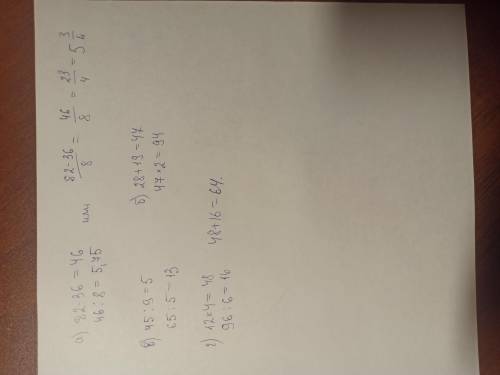 а) 82-36=46 или 82-36/8 = 46/8 = 23/4 = 5 3/4
46:8=5,75
в) 45:9=5 б) 28+19=47
65:5-13 47×2=94
г) 12×4=48 48+16=64.
96:6=16